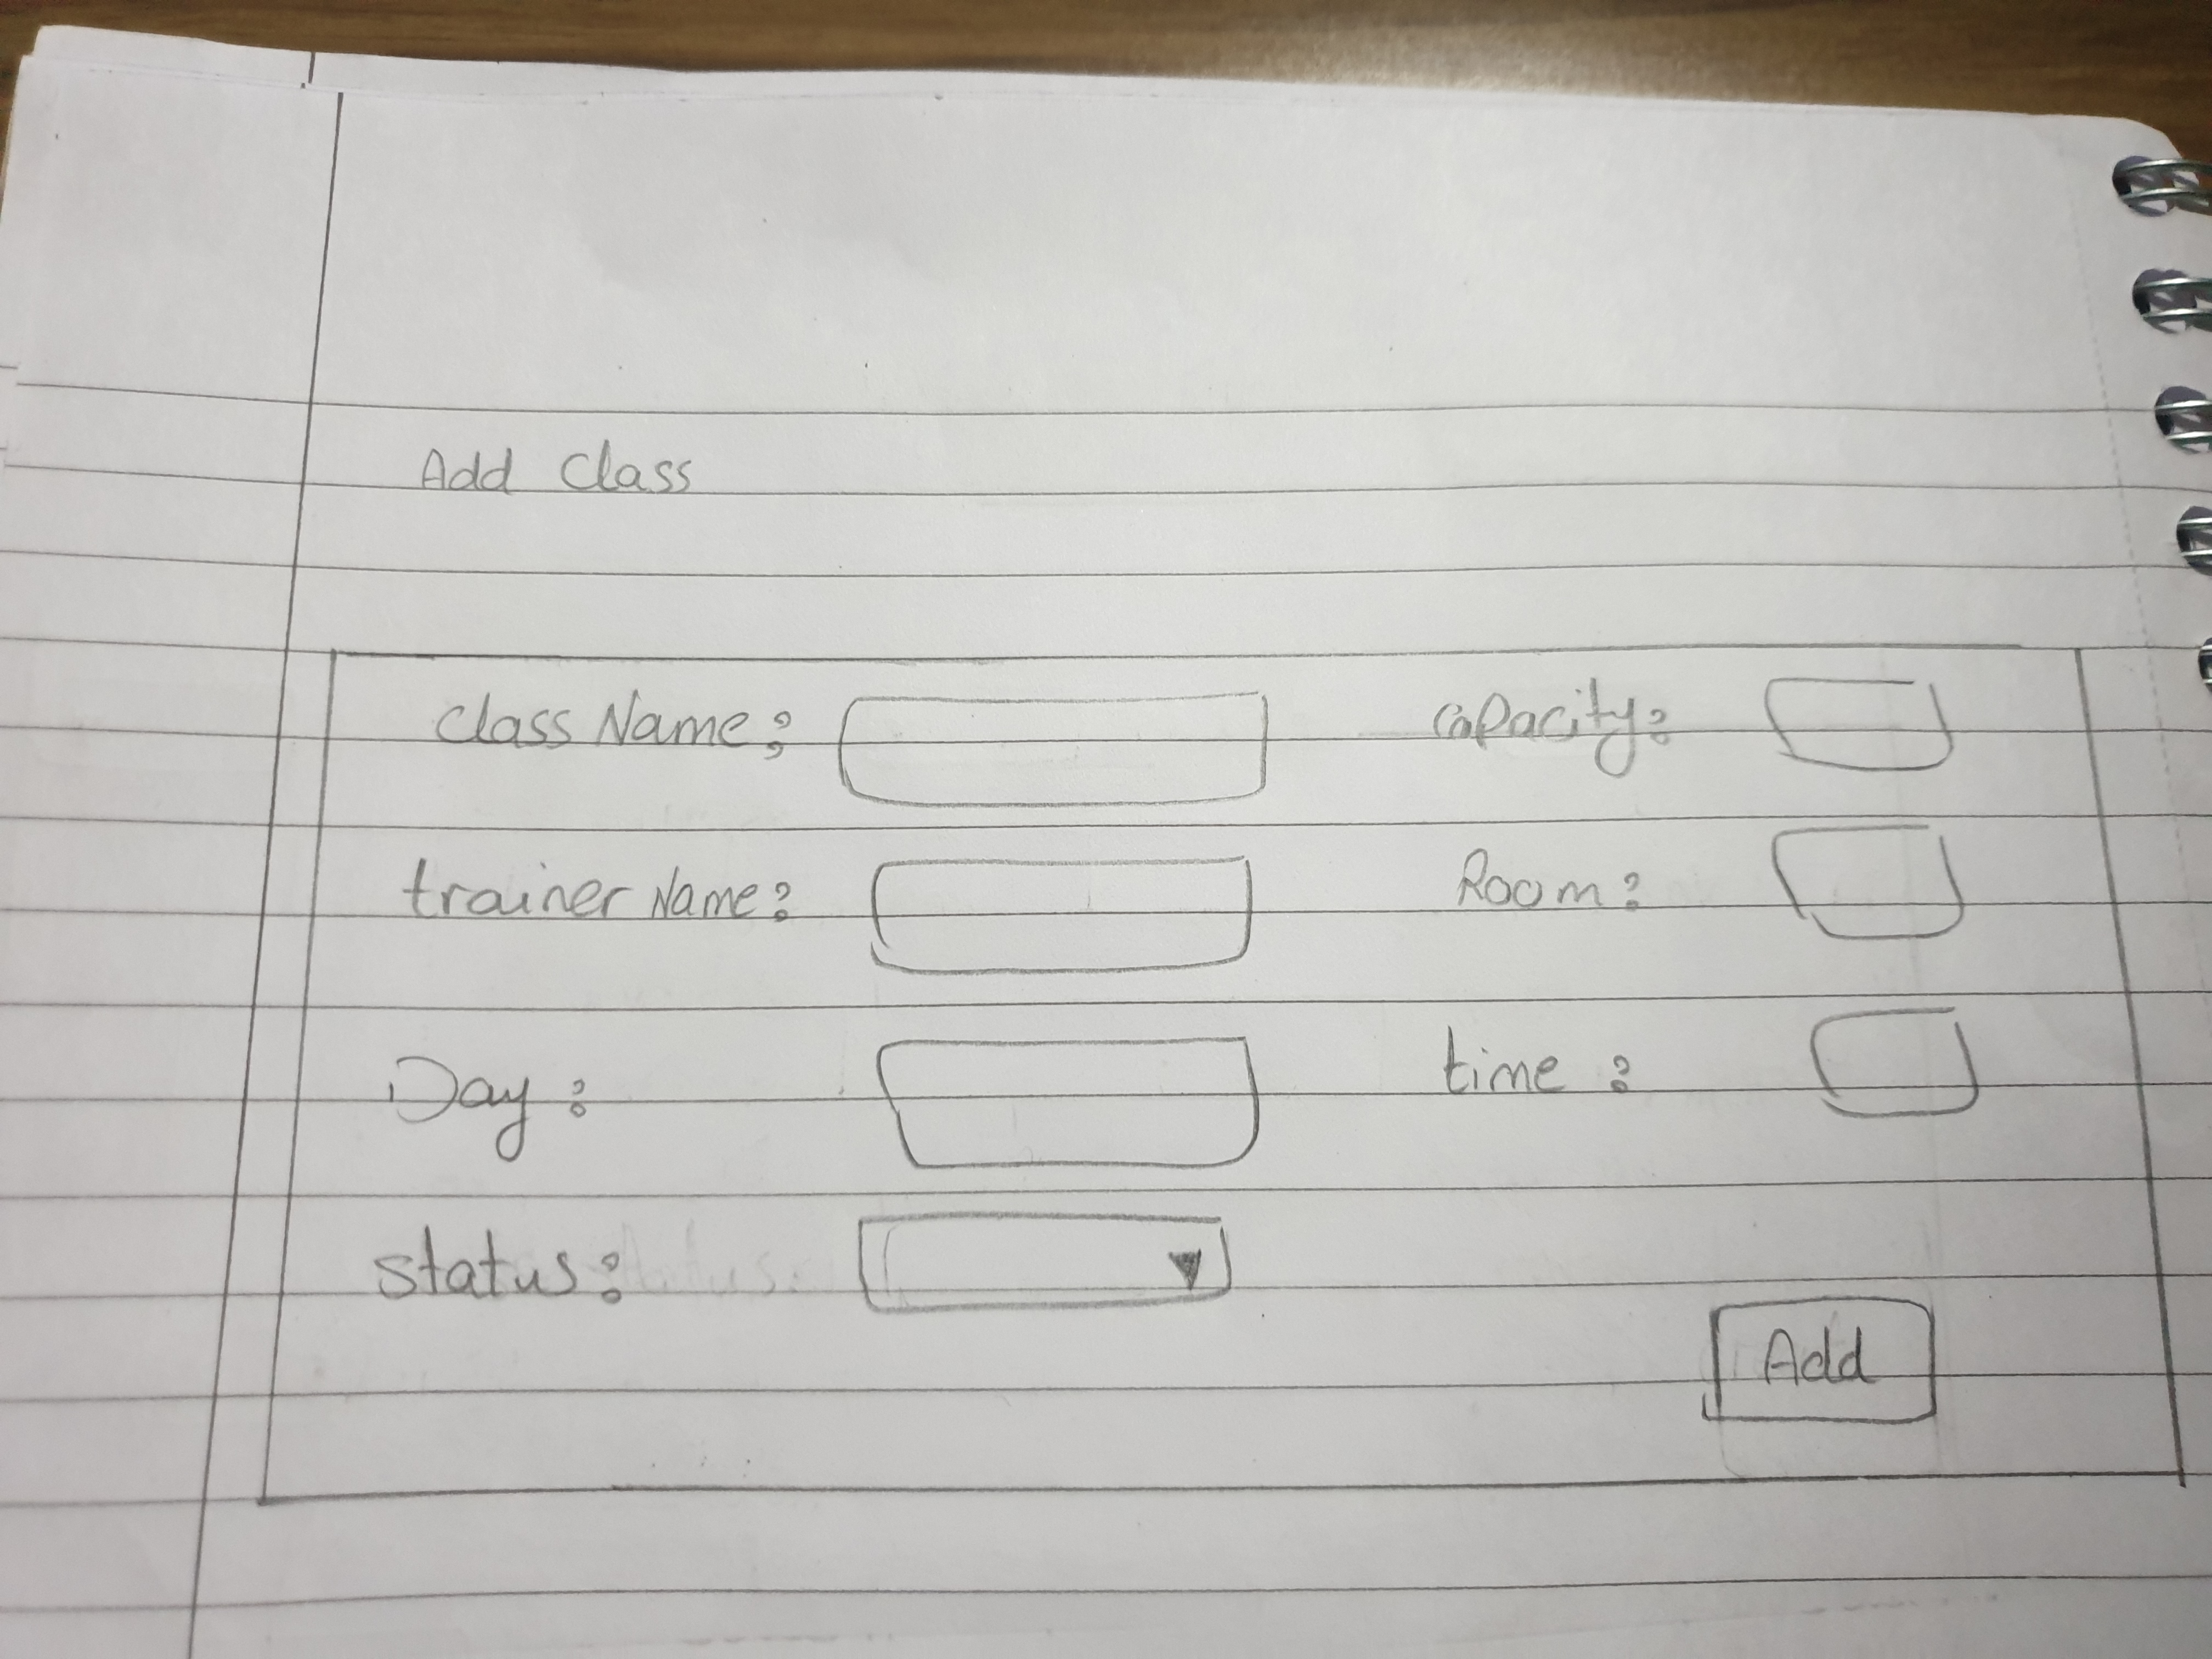 Add Class
Class Name: Capacity:
trainer Name: Room:
Day: time:
Status:
Add